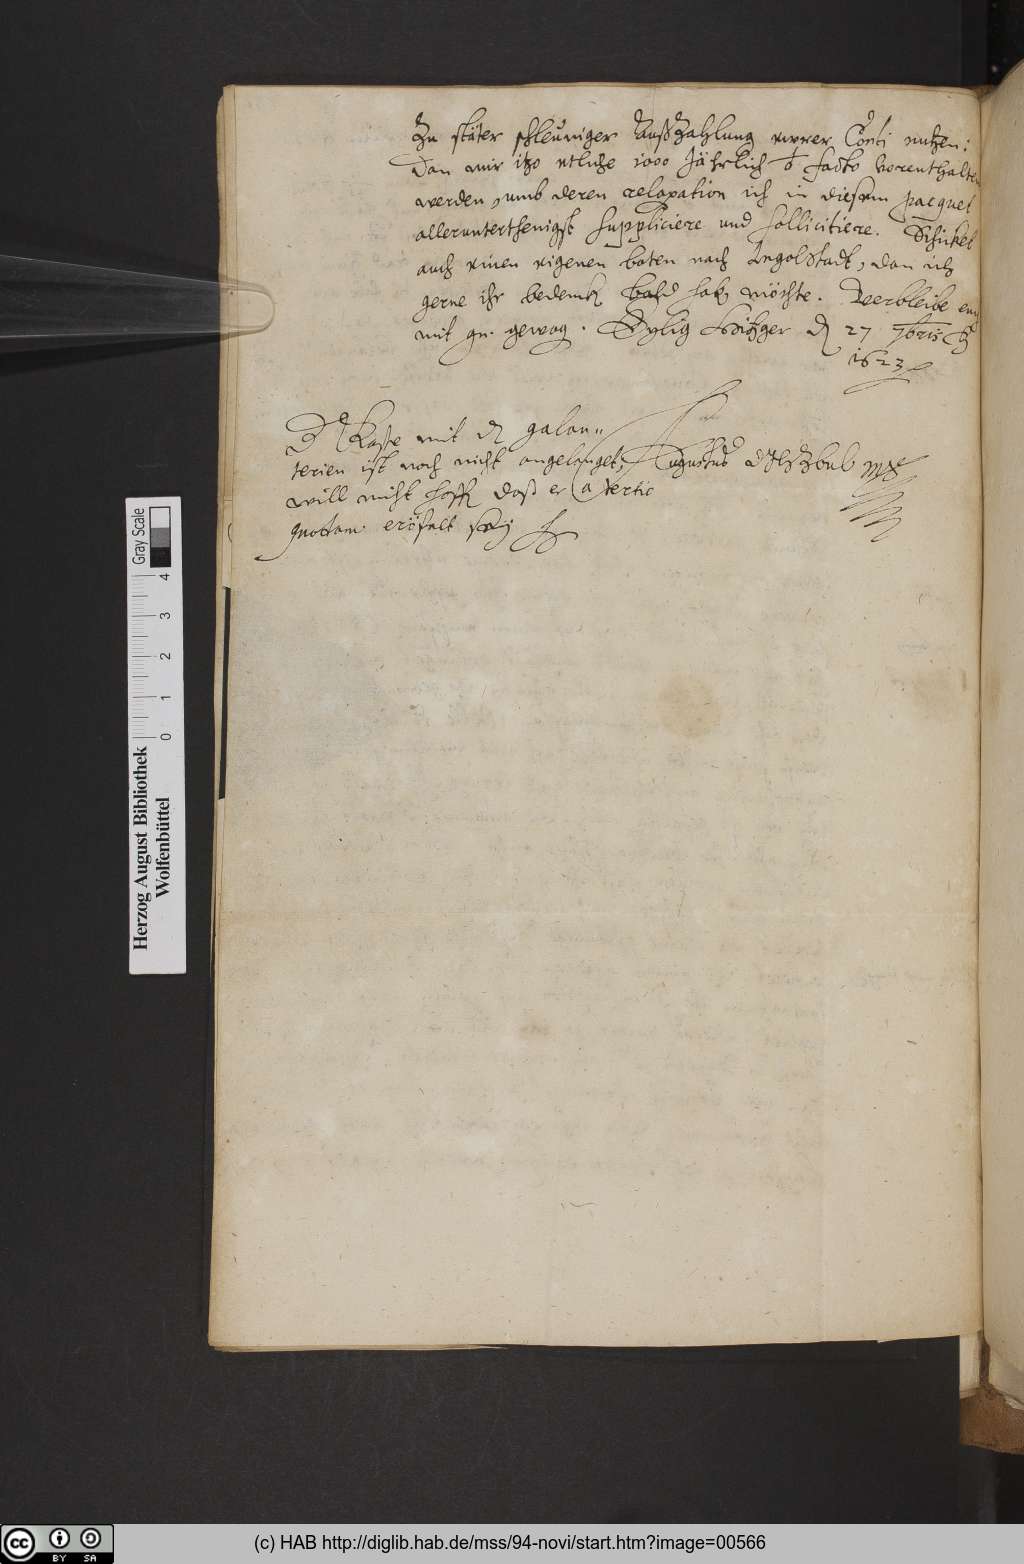 Zu stäter schleüniger Außzahlung ewrer Conti nutzen:
dan mir itzo etliche 1000 Jährlich de facto vorenthalten
werden, umb deren relaxation ich in diesem pacquet
allerunterthenigst suppliciere und sollicitiere. Schicket
auch einen eigenen boten nach Ingolstadt, dan ich
gerne ihr bedencken bald haben möchte. Verbleibe euch
mit gn. gewog. 27 7bris
1623
Kaste mit den galan=
terien ist noch nicht angelanget,
will nicht hoffen daß er a tertio
quodam
Augustus mp
Herzog August Bibliothek
Wolfenbüttel
0 1 2 3 4
Gray Scale
cc BY SA
(c) HAB http://diglib.hab.de/mss/94-novi/start.htm?image=00566